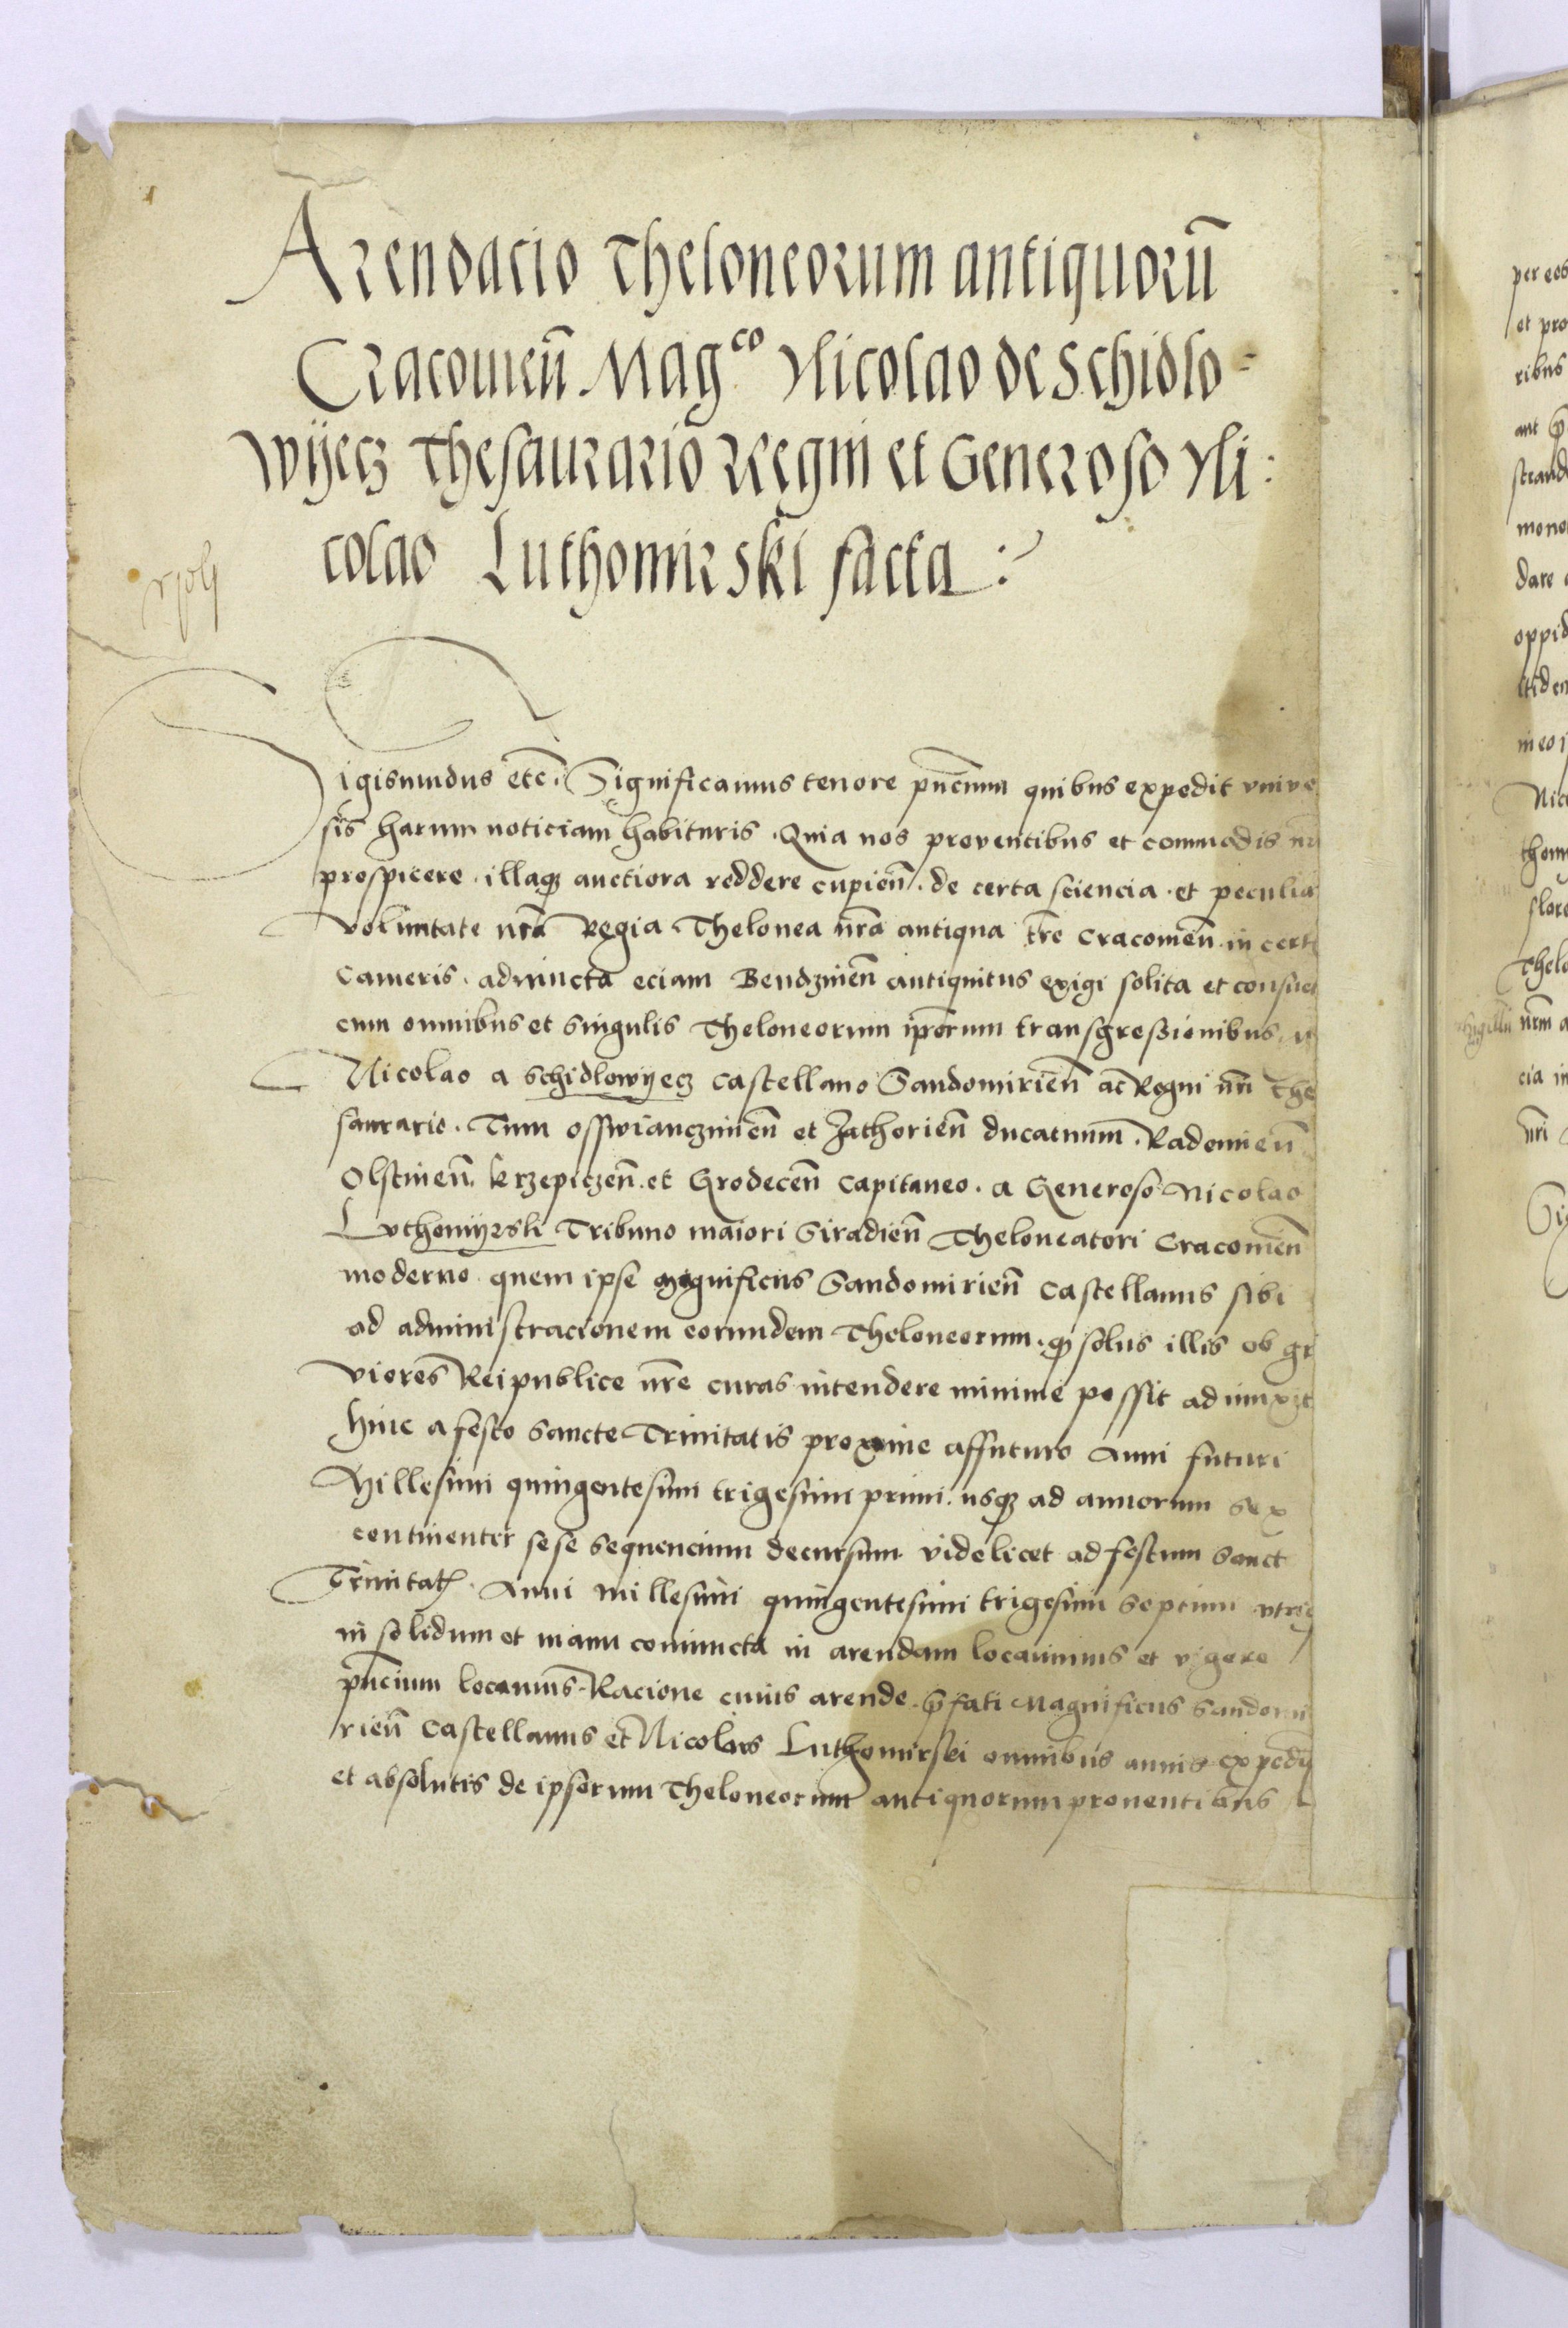 Arendacio Theloneorum antiquorū
Cracouieñ Mag^co Nicolao de Schidlo-
wijecz Thesaurario Regni et Generoso Ni:
colao Luthomirski facta:
Sigismundus etc̄. Significamus tenore pn̄cium quibus expedit vniver
sis harum noticiam habituris. Quia nos proventibus et commodis nr̄i
prospicere. illaqȝ auctiora reddere cupieñ. de certa sciencia. et peculia
voluntate nr̄a Regia Thelonea nr̄a antiqua tr̄e Cracouieñ. in certi
Cameris. adiuncta eciam Bendzinieñ antiquitus exigi solita et consuet
cum omnibus et singulis Theloneorum ip̄orum transgressionibus.
Nicolao a Schidlowijecz Castellano Sandomirieñ ac Regni nr̄i The
saurario. Tum osswiancziminieñ et Zathorieñ ducatuum. Radomieñ
Olstinieñ. krzepiczeñ. et Grodeceñ Capitaneo. a Generoso Nicolao
Luthomijrski Tribuno maiori Siradieñ Theloneatori Cracouieñ
moderno quem ipse magnificus Sandomirieñ Castellanus sibi
ad administracionem eorundem Theloneorum. qȝ solus illis ob gr
viores Reipublice nr̄e curas intendere minime possit adiunxit
hinc a festo Sancte Trinitatis proxime affuturo Anni futuri
Millesimi quingentesimi trigesimi primi. usqȝ ad annorum sex
continenter sese sequencium decursum videlicet ad festum Sanct
Trinitatꝭ. Anni millesimi quingentesimi trigesimi septimi
in solidum et manu coniuncta in arendam locauimus et vigore
pn̄cium locamus. Racione cuius arende p̄fati Magnificus Sandomi
rieñ Castellanus et Nicolaus Luthomirski omnibus annis
et absolutis de ipsorum Theloneorum antiquorum prouentibus
per eos
et pro
ribus
ant
strand
mone
dare
oppid
itidem
in eo
Nico
thom
slore
Thelo
sigillū nr̄m a
cia in
nr̄i